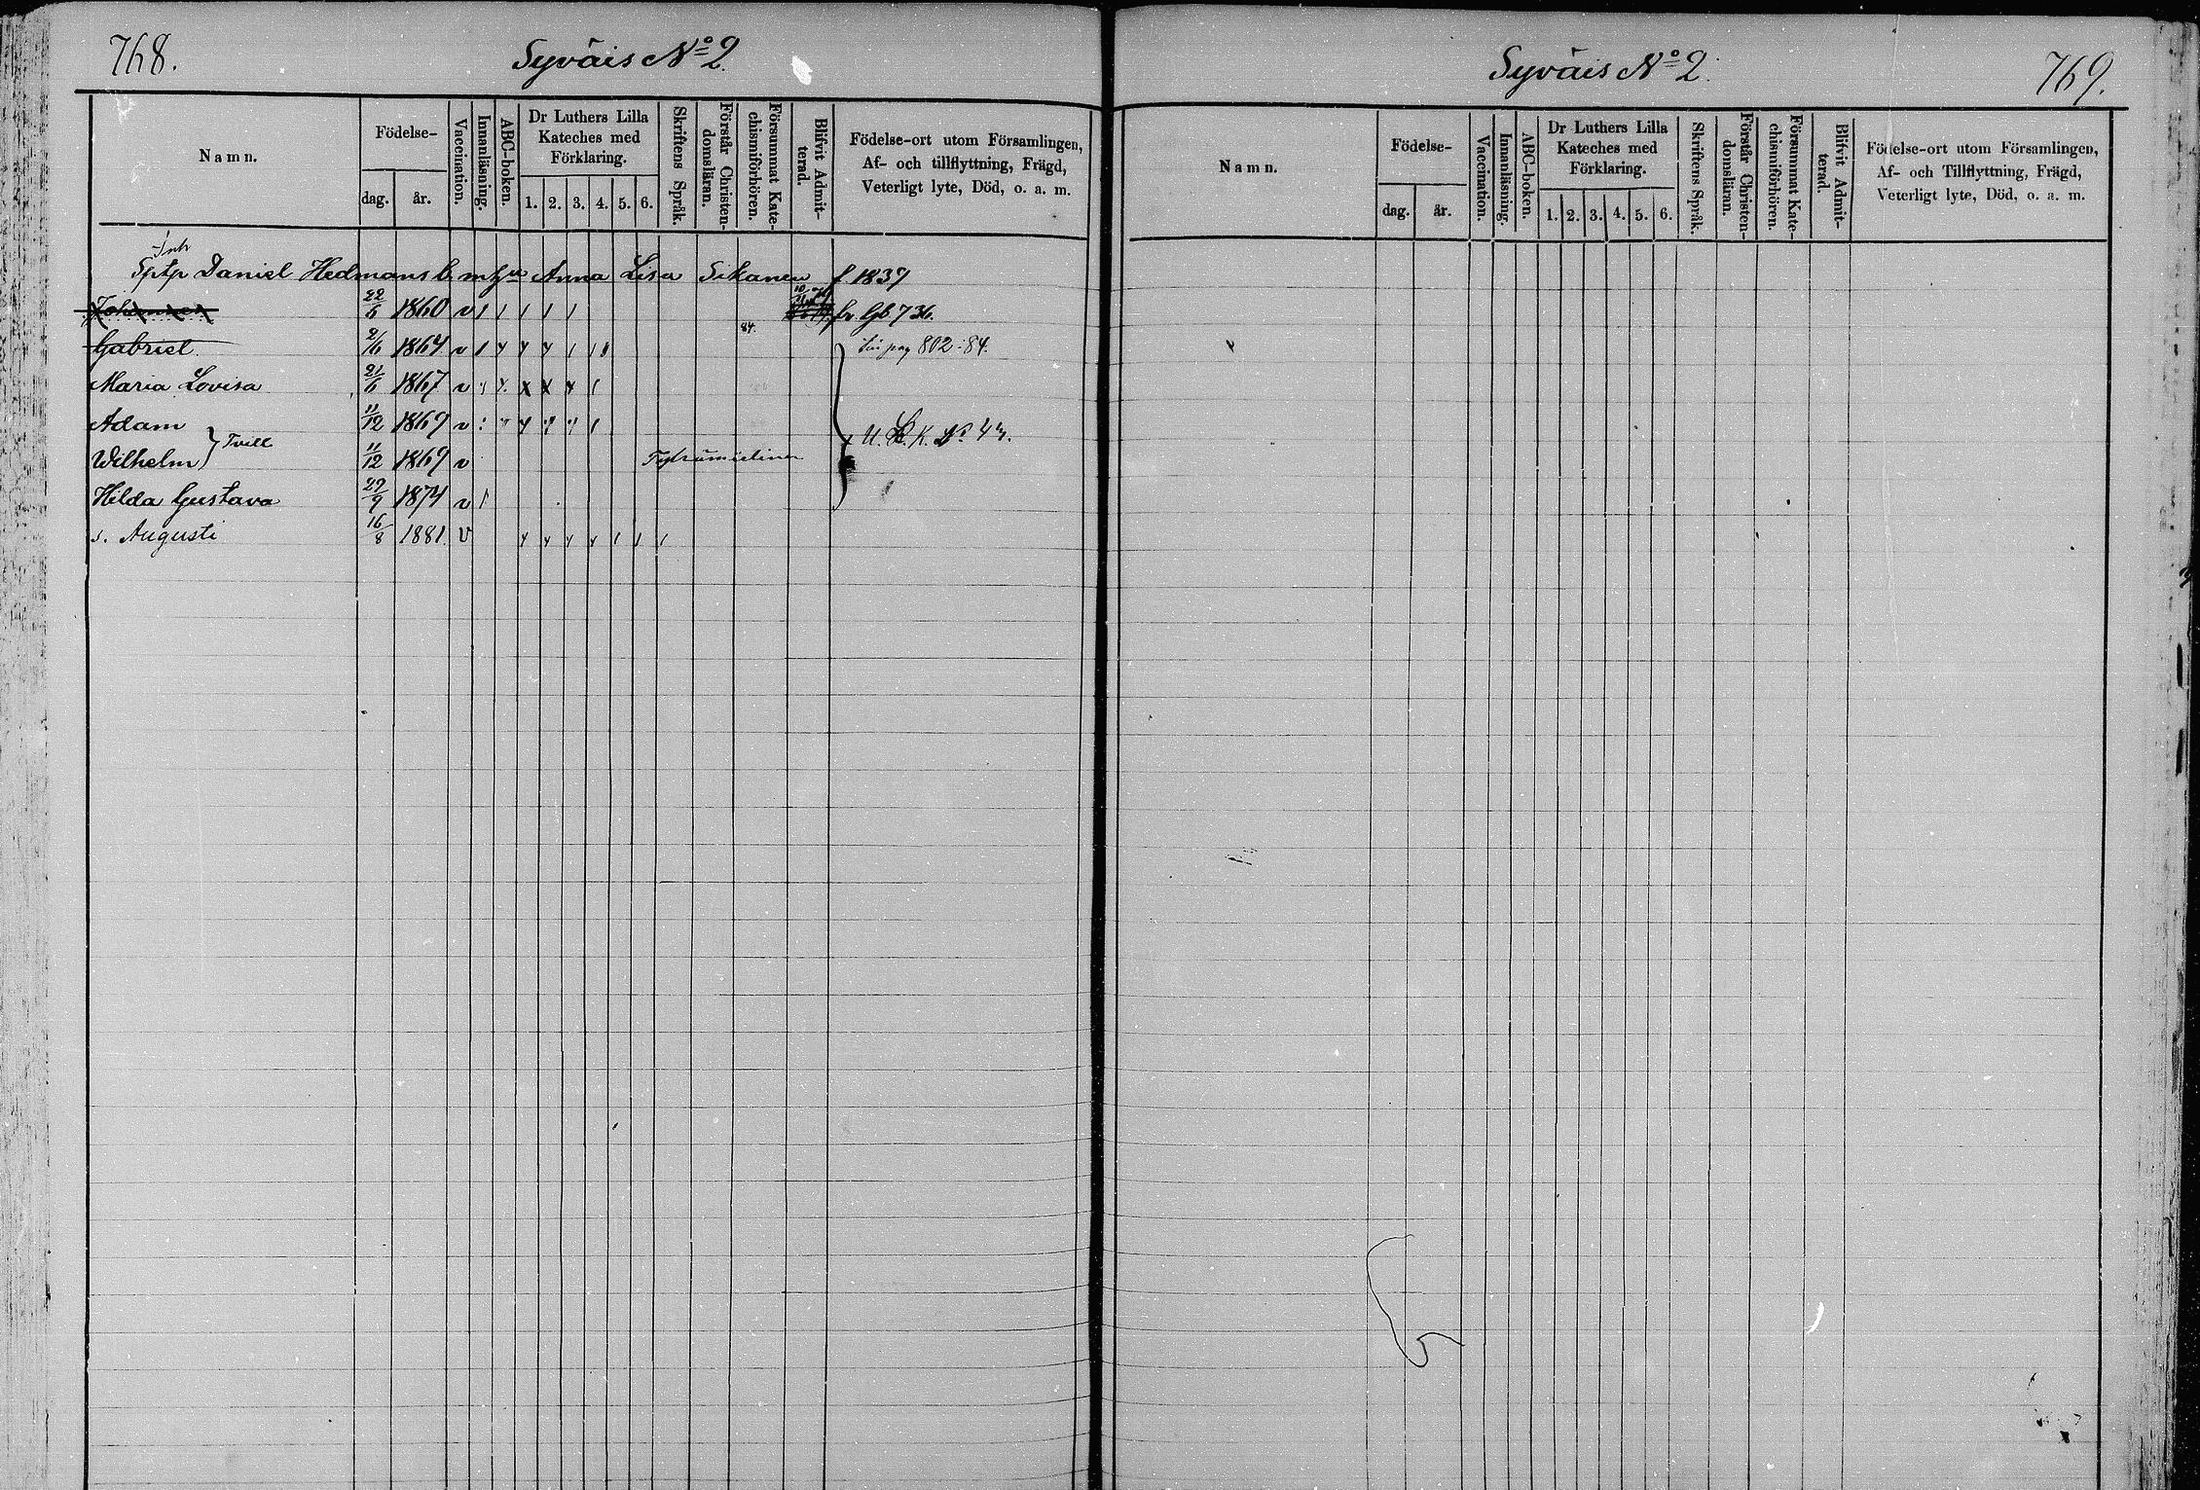 768.
Syväis No 2.
Namn.
Födelse-
dag.
år.
Vaccination.
Innanläsning.
ABC-boken.
Dr Luthers Lilla
Kateches med
Förklaring.
1. 2. 3. 4. 5. 6.
Skriftens Språk.
Förstår Christen-
domsläran.
Försummat Kate-
chismiförhören.
Blifvit Admit-
terad.
Födelse-ort utom Församlingen,
Af- och tillflyttning, Frägd,
Veterligt lyte, Död, o. a. m.
Inh
Daniel Hedmans b. m hu Anna Lisa Sikanen f 1837
Johannes 22/5 1860 v fr Gb 736.
84.
Gabriel 2/6 1864 v pag 802 :84.
Maria Lovisa 21/6 1867 v
Adam 11/12 1869 v
Tvill U. K. No 43.
Wilhelm 11/12 1869 v
Hilda Gustava 29/9 1874 v
s. Augusti 16/8 1881 v
Syväis No 2.
769.
Namn.
Födelse-
dag.
år.
Vaccination.
Innanläsning.
ABC-boken.
Dr Luthers Lilla
Kateches med
Förklaring.
1. 2. 3. 4. 5. 6.
Skriftens Språk.
Förstår Christen-
domsläran.
Försummat Kate-
chismiförhören.
Blifvit Admit-
terad.
Födelse-ort utom Församlingen,
Af- och Tillflyttning, Frägd,
Veterligt lyte, Död, o. a. m.